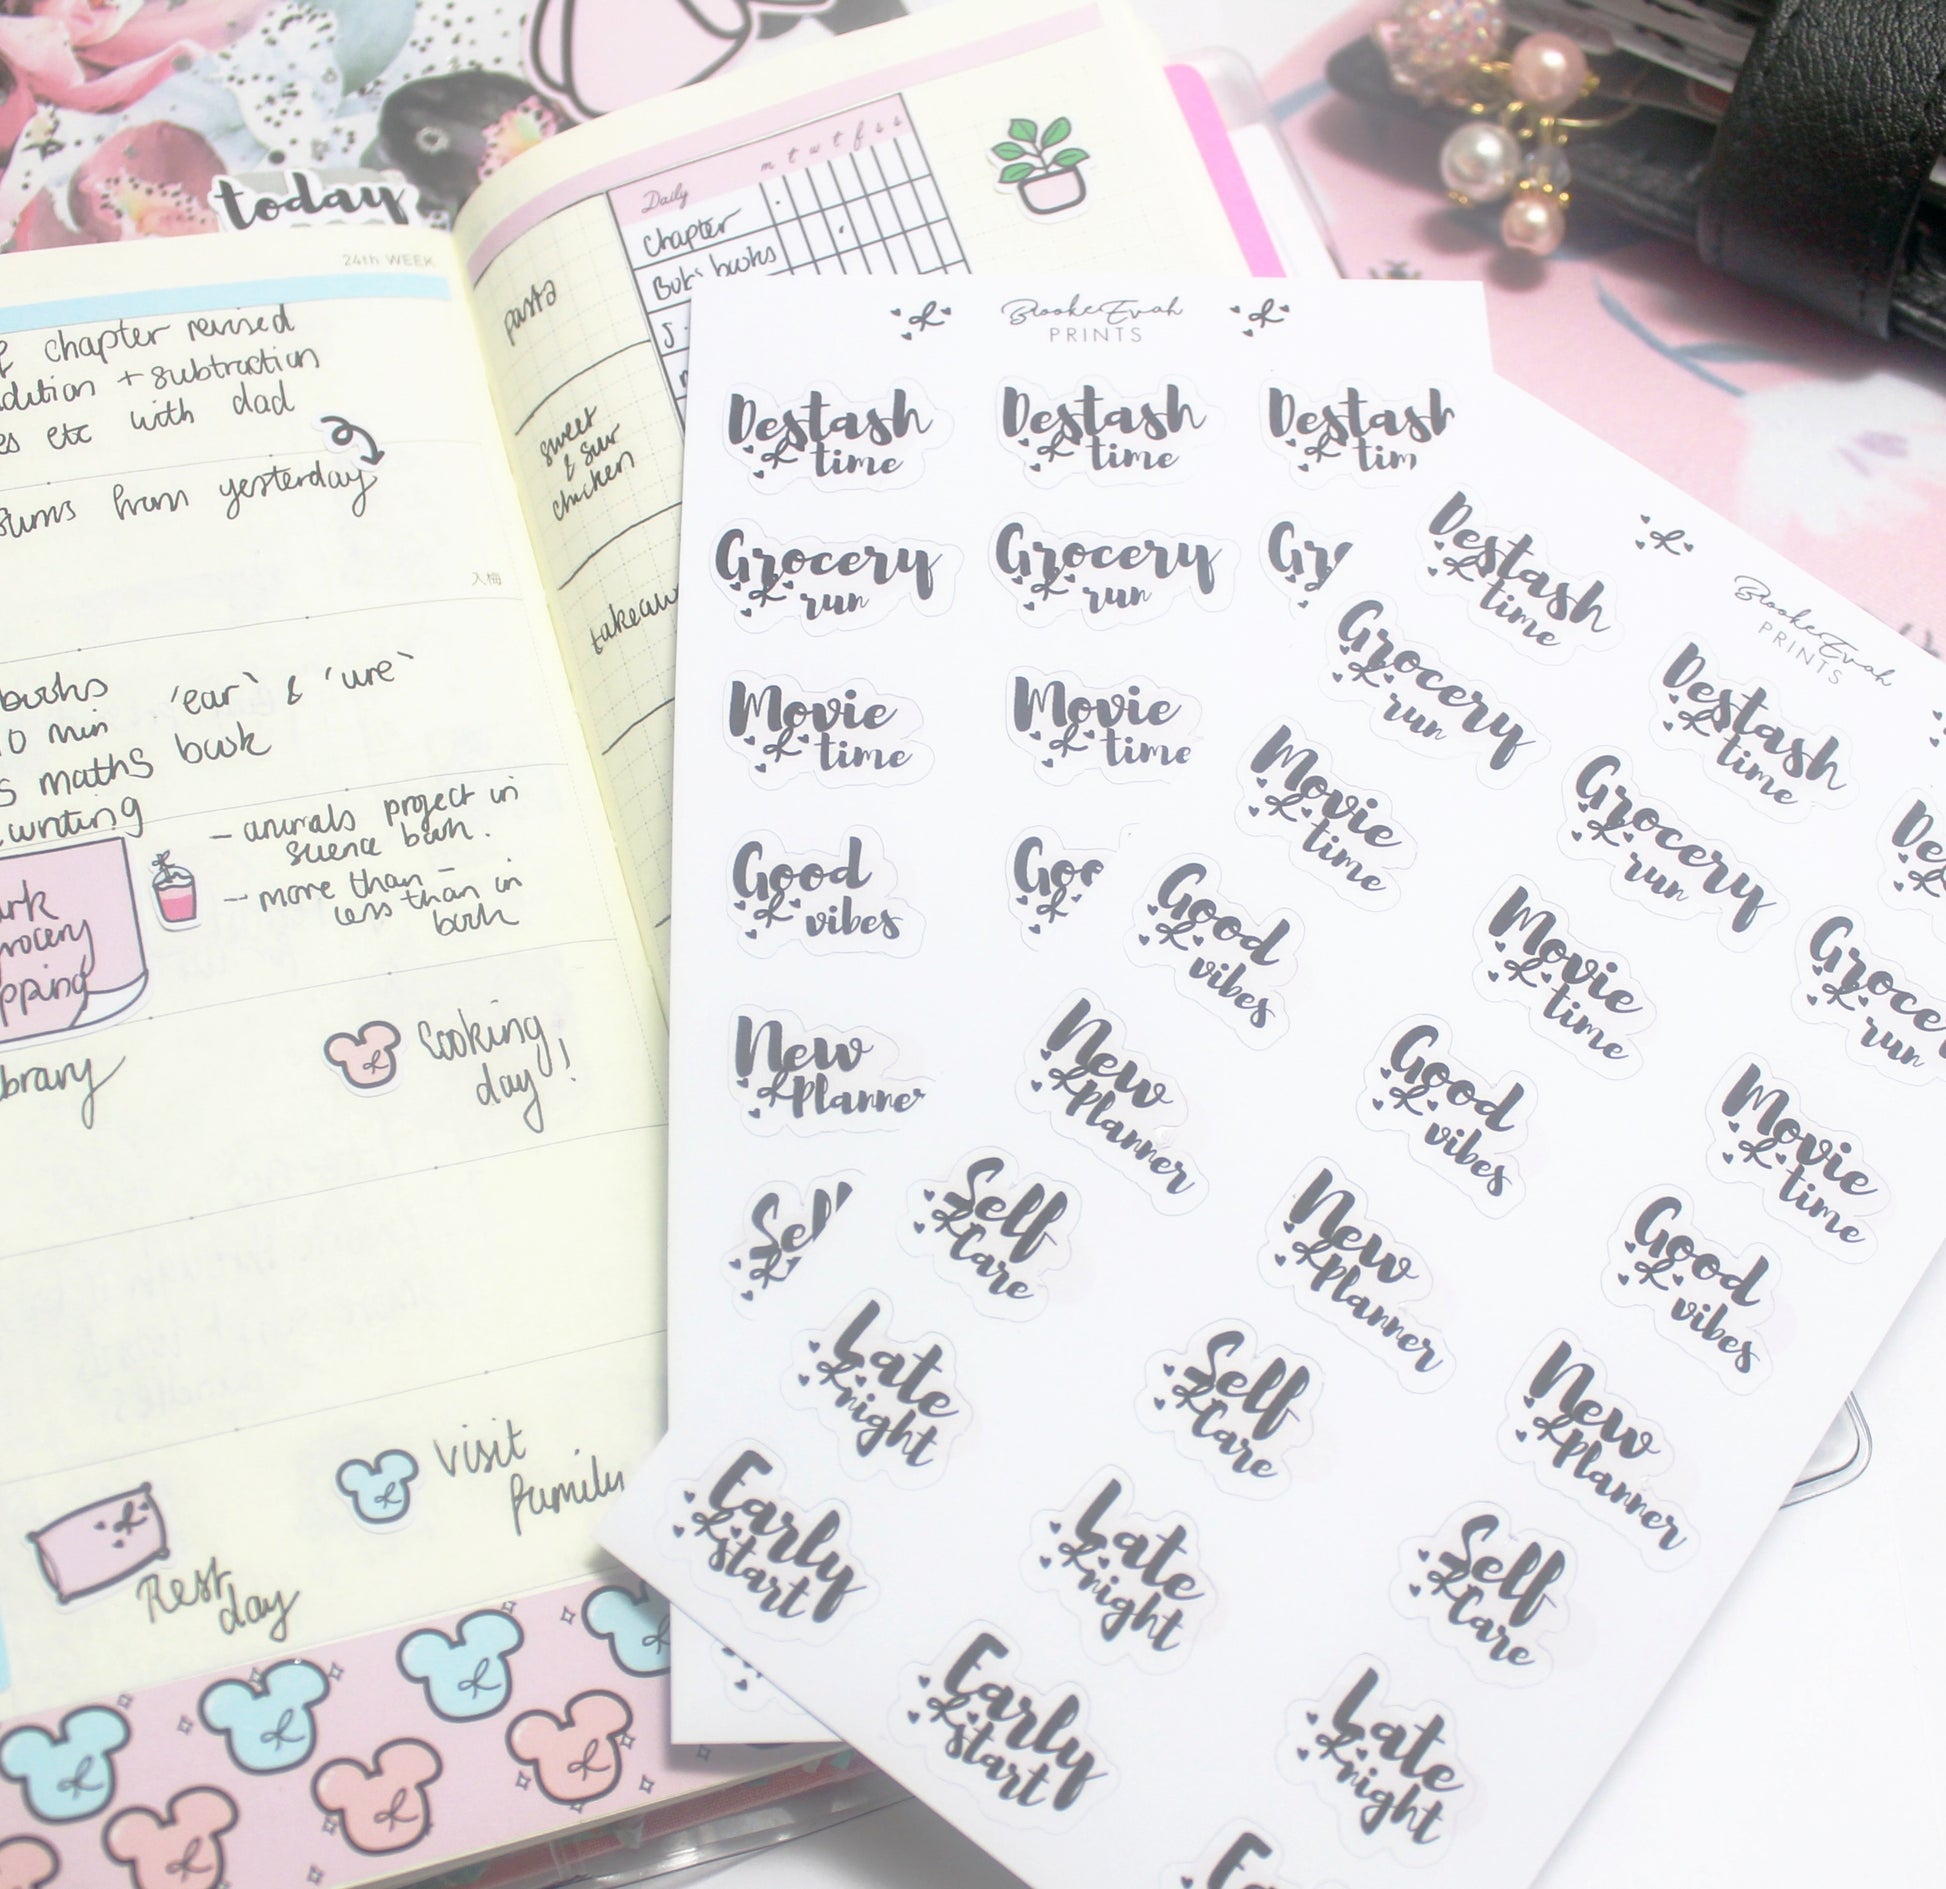 today
24th WEEK
chapter revised
+ subtraction
etc with dad
sums from yesterday
入梅
books 'ear' & 'ure'
min
maths book
writing
- animals project in
science book.
- more than -
less than in
book
Cooking
day!
visit
family
Rest
day
Daily m t w t f s s
Chapter
books
pasta
sweet
& sour
chicken
BrookeEvah
PRINTS
Destash
time
Destash
time
Destash
tim
Grocery
run
Grocery
run
Gro
Movie
time
Movie
time
Good
vibes
Goo
New
Planner
Self
BrookeEvah
PRINTS
Destash
time
Destash
time
De
Grocery
run
Grocery
run
Groce
run
Movie
time
Movie
time
Movie
time
Good
vibes
Good
vibes
Good
vibes
New
Planner
New
Planner
New
Planner
Self
Care
Self
Care
Self
Care
Late
night
Late
night
Late
night
Early
start
Early
start
E